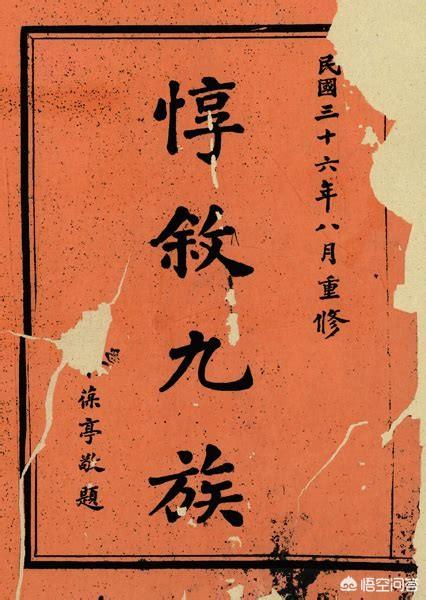 民國三十六年八月重修
惇敘九族
葆亭敬題
悟空问答